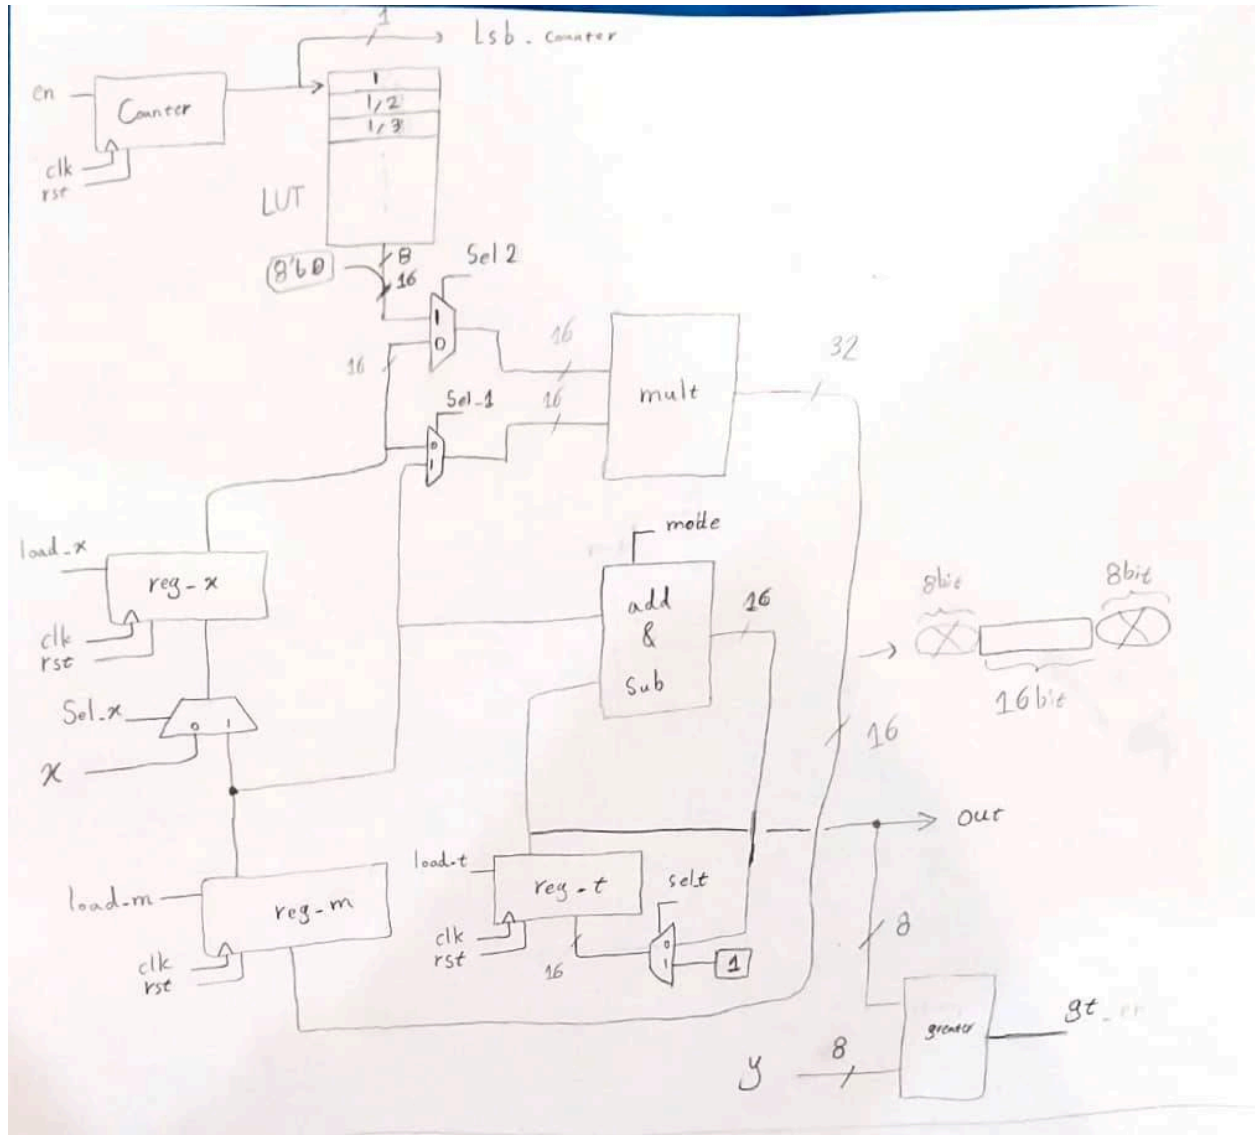 1
Lsb_counter
en
Counter
clk
rst
1
1/2
1/3
LUT
8
8'b0
16
Sel 2
1
0
16
16
Sel_1
16
0
1
mult
32
load_x
reg_x
clk
rst
mode
add
&
Sub
16
8bit
8bit
16bit
16
Sel_x
0
1
x
out
load_m
reg_m
clk
rst
load_t
reg_t
clk
rst
16
selt
0
1
1
8
y
8
greater
gt_en